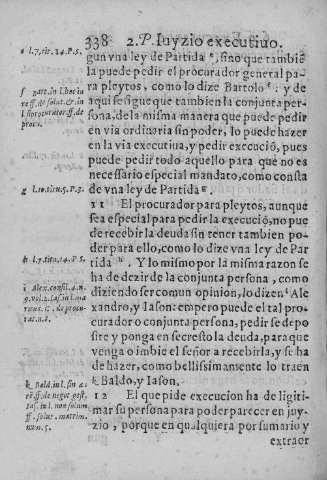 338 2. P. Iuyzio executiuo.
e l.7.tit.14.P.5.
gun vna ley de Partida e, sino que tambiē
la puede pedir el procurador general pa-
ra pleytos, como lo dize Bartolo f: y de
aqui se sigue que tambien la conjunta per-
sona, de la misma manera que puede pedir
en via ordinaria sin poder, lo puede hazer
en la via executiua, y pedir execució, pues
puede pedir todo aquello para que no es
necessario especial mandato, como consta
g l.10.titu.5.P.3.
de vna ley de Partida g.
11 El procurador para pleytos, aunque
sea especial para pedir la execució, no pue
de recebir la deuda sin tener tambien po-
der para ello, como lo dize vna ley de Par
h l.7.titu.14.P.5.
tida h. Y lo mismo por la misma razon se
ha de dezir de la conjunta persona, como
diziendo ser comun opinion, lo dizen i Ale
xandro, y Iason: empero puede el tal pro-
curador o conjunta persona, pedir se depo
site y ponga en secresto la deuda, para que
venga o imbie el señor a recebirla, y se ha
de hazer, como bellissimamente lo traen
k Baldo, y Iason.
12 El que pide execucion ha de ligiti-
mar su persona para poder parecer en juy-
zio, porque en qualquiera por sumario y
extraor